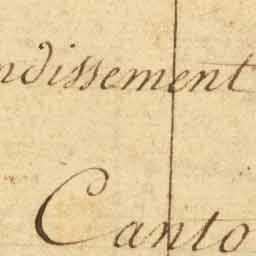 ndissement
Canto